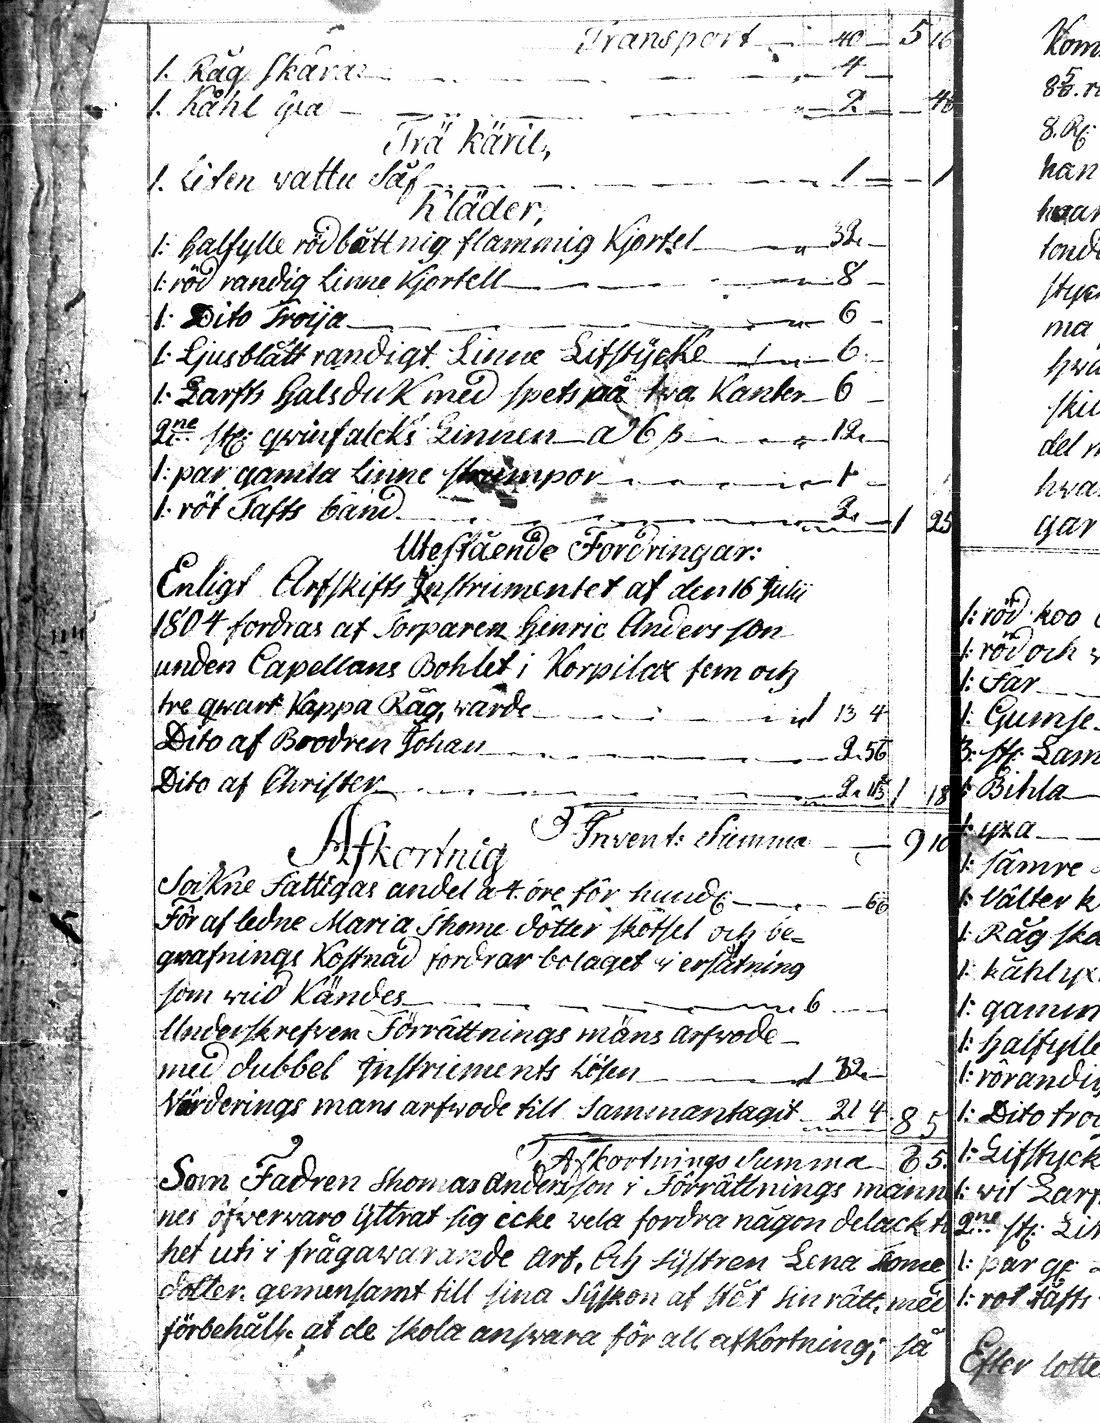 Transport 40 5 16
1. Råg Skära 4
1. Kåhl yxa 2 46
Trä käril,
1. Liten vattu Såf 1 1
Kläder,
1: halfylle rödbåttnig flammig Kjortel 32
1: röd randig Linne Kjortell 8
1: Dito Troija 6
1: Ljusblått randigt Linne Lifstÿcke 6
1: Larfts halsduk med spets på två Kanter 6
2ne st: qwinfålcks Linnen a 6 ß 12
1: par gamla Linne strumpor 1
1: röt Tafts band 2 1 25
Utestående Fordringar:
Enligt Arfskifts Instrumentet af den 16 Julii
1804 fordras af Torparen Hinric Andersson
unden Capellans Bohlet i Korpilax fem och
tre qwart Kappa Råg, wärde 1 13 4
Dito af Brodren Johan 2 56
Dito af Christer 2 1 18
Invent: Summa 9 10
Afkortnig
Sokne Fattigas andel a t. öre för hundr
För afledne Maria Thome dotter skötsel och be=
grafnings Kostnad fordrar bolaget i ersätning
som wid Kändes 6
Underskrefven Förrättnings mäns arfwode
med dubbel Instruments Lösen 1 32
Värderings mans arfwode till sammantagit 21 4 8 5
Afkortnings Summa 8 5.
Som Fadren Thomas Andersson i Förrättnings männ
nes öfwerwaro ÿttrat sig ecke wela fordra någon delackti
het uti i frågawarande Arf, Och Sÿstren Lena Tome
dotter gemensamt till sina Sÿskon af stöt sin rätt, med
förbehåll at de skola answara för all afkortning; så
Kom
8.
han
tond
styc
ma
hwa
skil
del
hwa
gar
1: röd koo
1: röd och
1: Får
1: Gumse
3: st: Lam
1: Bihla
1: yxa
1: sämre
1: Välter
1: Råg ska
1: kåhlyx
1: gamm
1: halfylle
1: rörandig
1: Dito tro
1: Lifstyck
1: vit Larf
2ne st: Lin
1: par g
1: rot tafts
Efter lotte